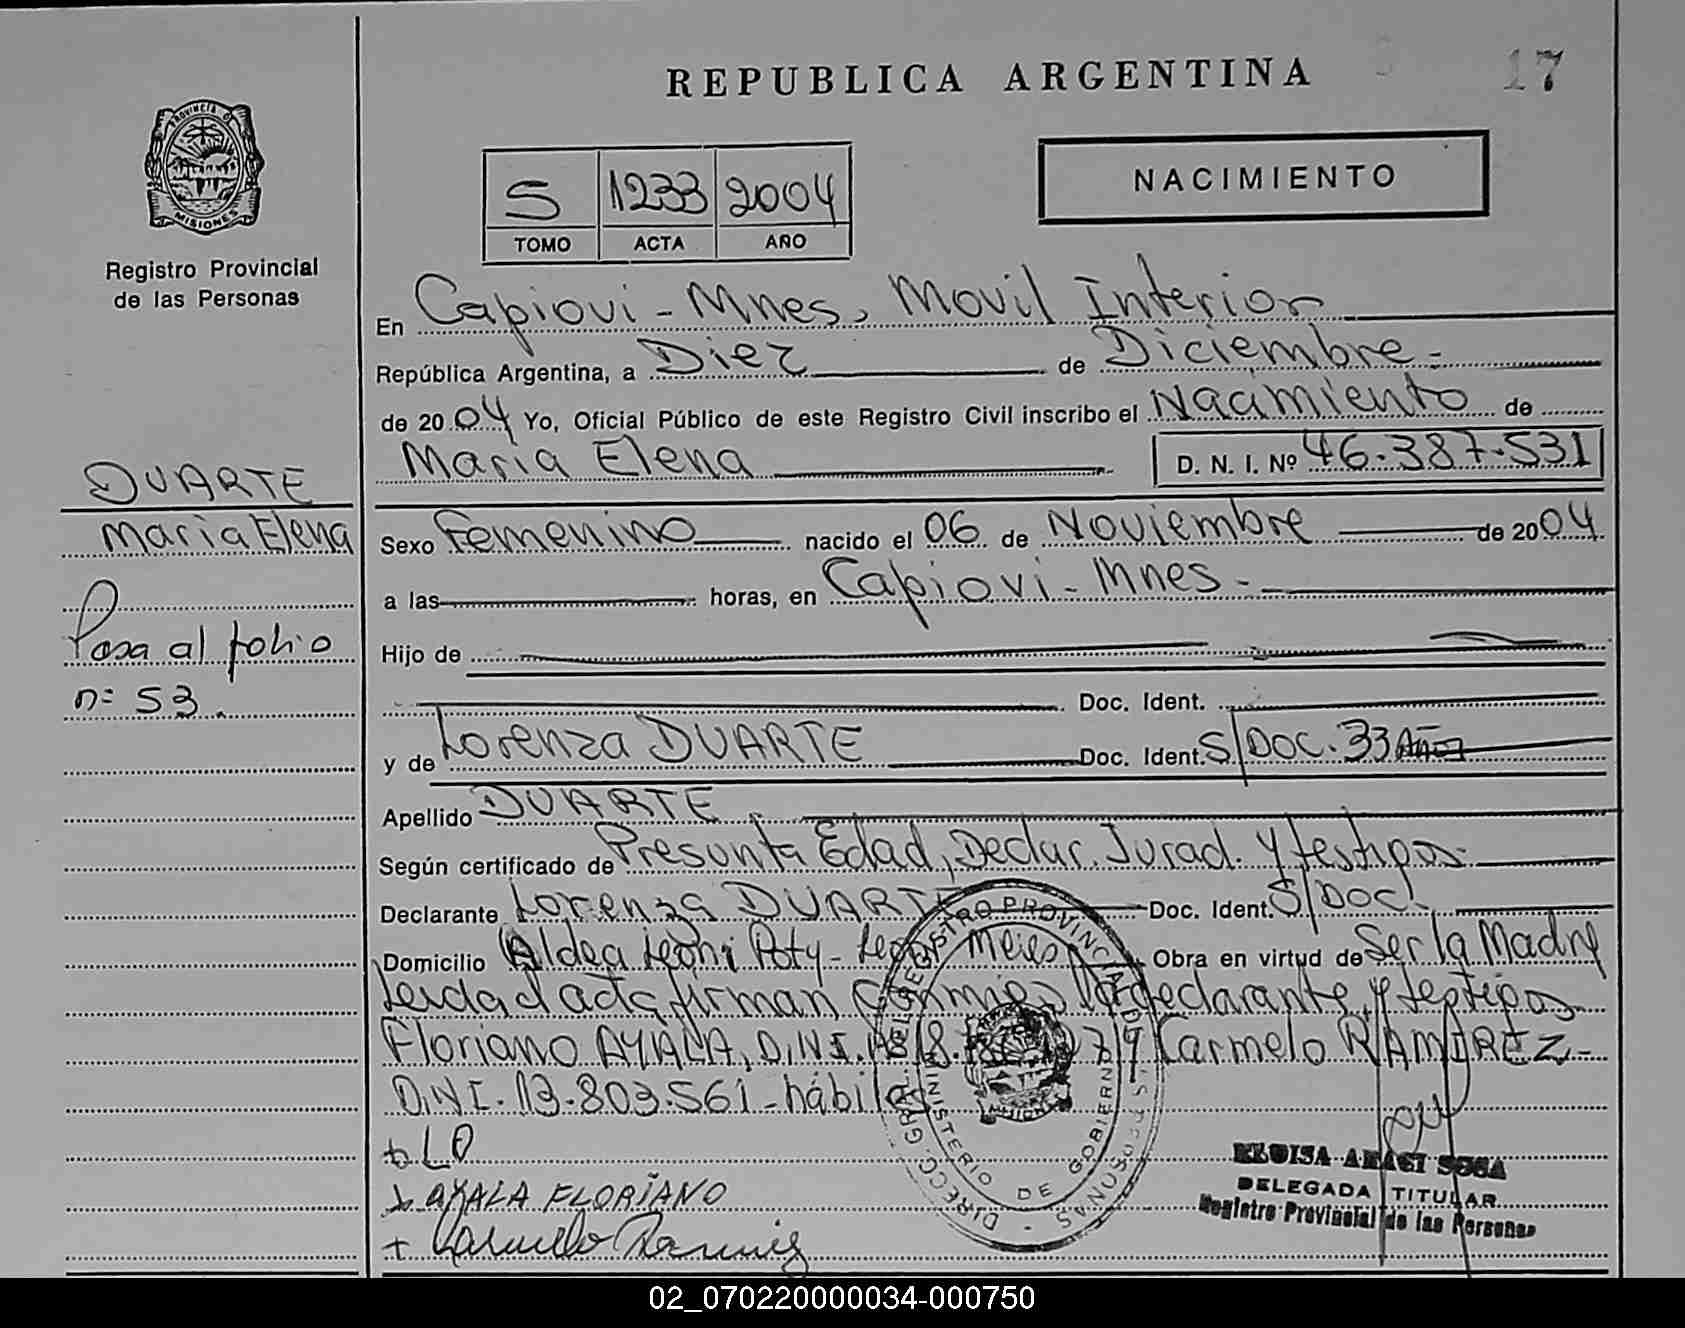 REPUBLICA ARGENTINA
17
PROVINCIA D
MISIONES
Registro Provincial
de las Personas
S 1233 2004
TOMO ACTA AÑO
NACIMIENTO
En Capiovi - Mnes, Movil Interior
República Argentina, a Diez de Diciembre.-
de 2004 Yo, Oficial Público de este Registro Civil inscribo el Nacimiento de
Maria Elena D. N. I. Nº 46.387.531
DUARTE
Maria Elena
Pasa al folio
nº 53.
Sexo Femenino nacido el 06 de Noviembre de 2004
a las horas, en Capiovi - Mnes.-
Hijo de
Doc. Ident.
y de Lorenza DUARTE Doc. Ident. S/DOC. 33 Años
Apellido DUARTE
Según certificado de Presunta Edad, Declar. Jurad. y testigos.
Declarante Lorenza DUARTE Doc. Ident. S/DOC.
Domicilio Aldea Leoni Poty - Obra en virtud de Ser la Madre
Leida el acta firman declarante, y testigos
Floriano AYALA, D.N.I. Nº 18. Carmelo RAMIREZ-
D.N.I. 13.803.561 - hábiles
+ LD
+ AYALA FLORIANO
+ Carmelo Ramirez
DIRECC. GRAL. DEL REGISTRO PROVINCIAL DE LAS PERSONAS
MINISTERIO DE GOBIERNO
MISIONES
ELOISA ARACI SOSA
DELEGADA TITULAR
Registro Provincial de las Personas
02_070220000034-000750